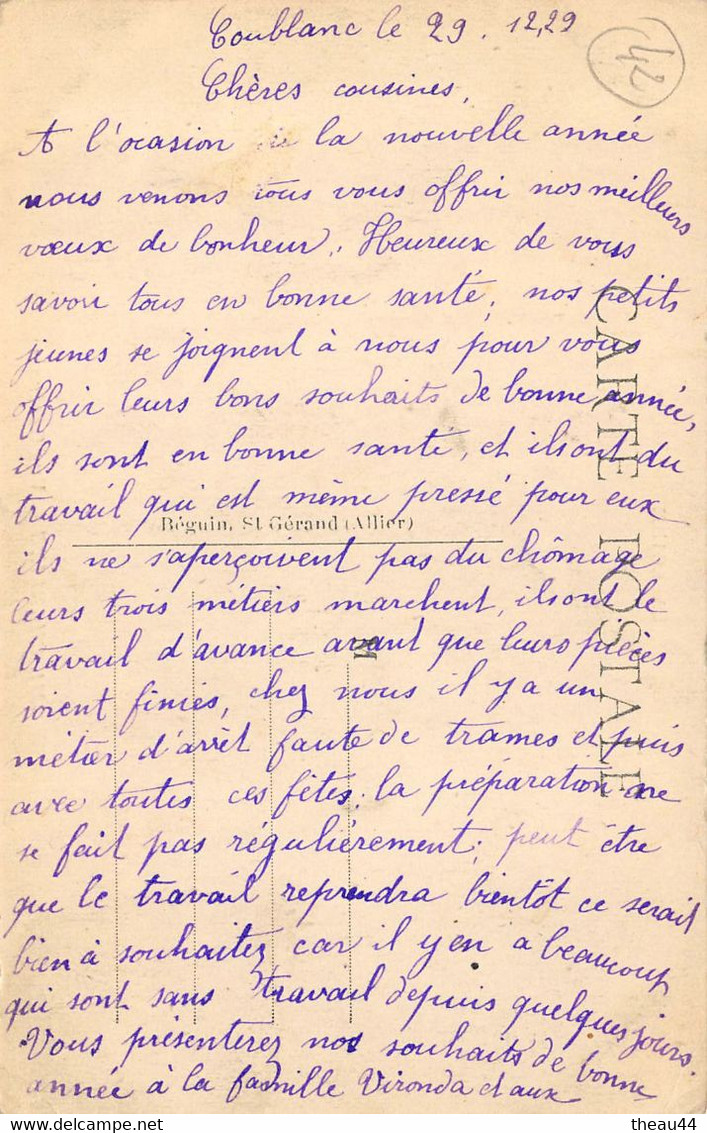 Coublanc le 29. 12,29
42
Chères cousines,
A l'ocasion de la nouvelle année
nous venons tous vous offrir nos meilleurs
vœux de bonheur. Heureux de vous
savoir tous en bonne santé, nos petits
jeunes se joignent à nous pour vous
offrir leurs bons souhaits de bonne année,
ils sont en bonne santé, et ils ont du
travail qui est même pressé pour eux
Béguin, St Gérand (Allier)
ils ne s'aperçoivent pas du chômage
leurs trois métiers marchent, ils ont le
travail d'avance avant que leurs pièces
M
soient finies, chez nous il y a un
métier d'arrêt faute de trames et puis
avec toutes ces fêtes, la préparation ne
se fait pas régulièrement; peut être
que le travail reprendra bientôt ce serait
bien à souhaitez car il y en a beaucoup
qui sont sans travail depuis quelques jours.
Vous présenterez nos souhaits de bonne
année à la famille Vironda et aux
CARTE POSTALE
delcampe.net
theau44